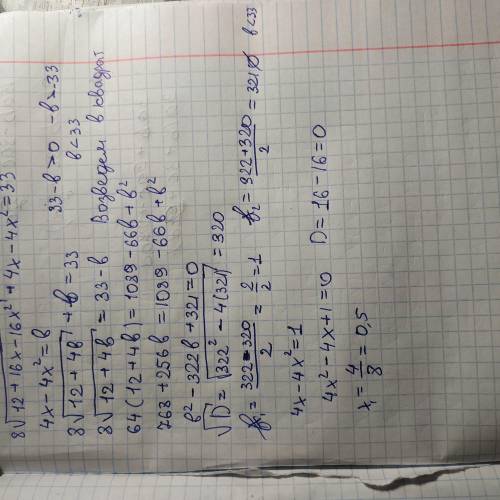 8√12+16x-16x² + 4x-4x² = 33
4x-4x² = в
8√12+4в + в = 33 33-в>0 -в>-33
8√12+4в = 33-в в<33
Возведем в квадрат
64(12+4в) = 1089-66в+в²
768+256в = 1089-66в+в²
в²-322в+321=0
√D = √322²-4(321) = 320
в₁ = (322-320)/2 = 2/2 = 1 в₂ = (322+320)/2 = 321 в<33
4x-4x²=1
4x²-4x+1=0 D=16-16=0
x₁ = 4/8 = 0,5